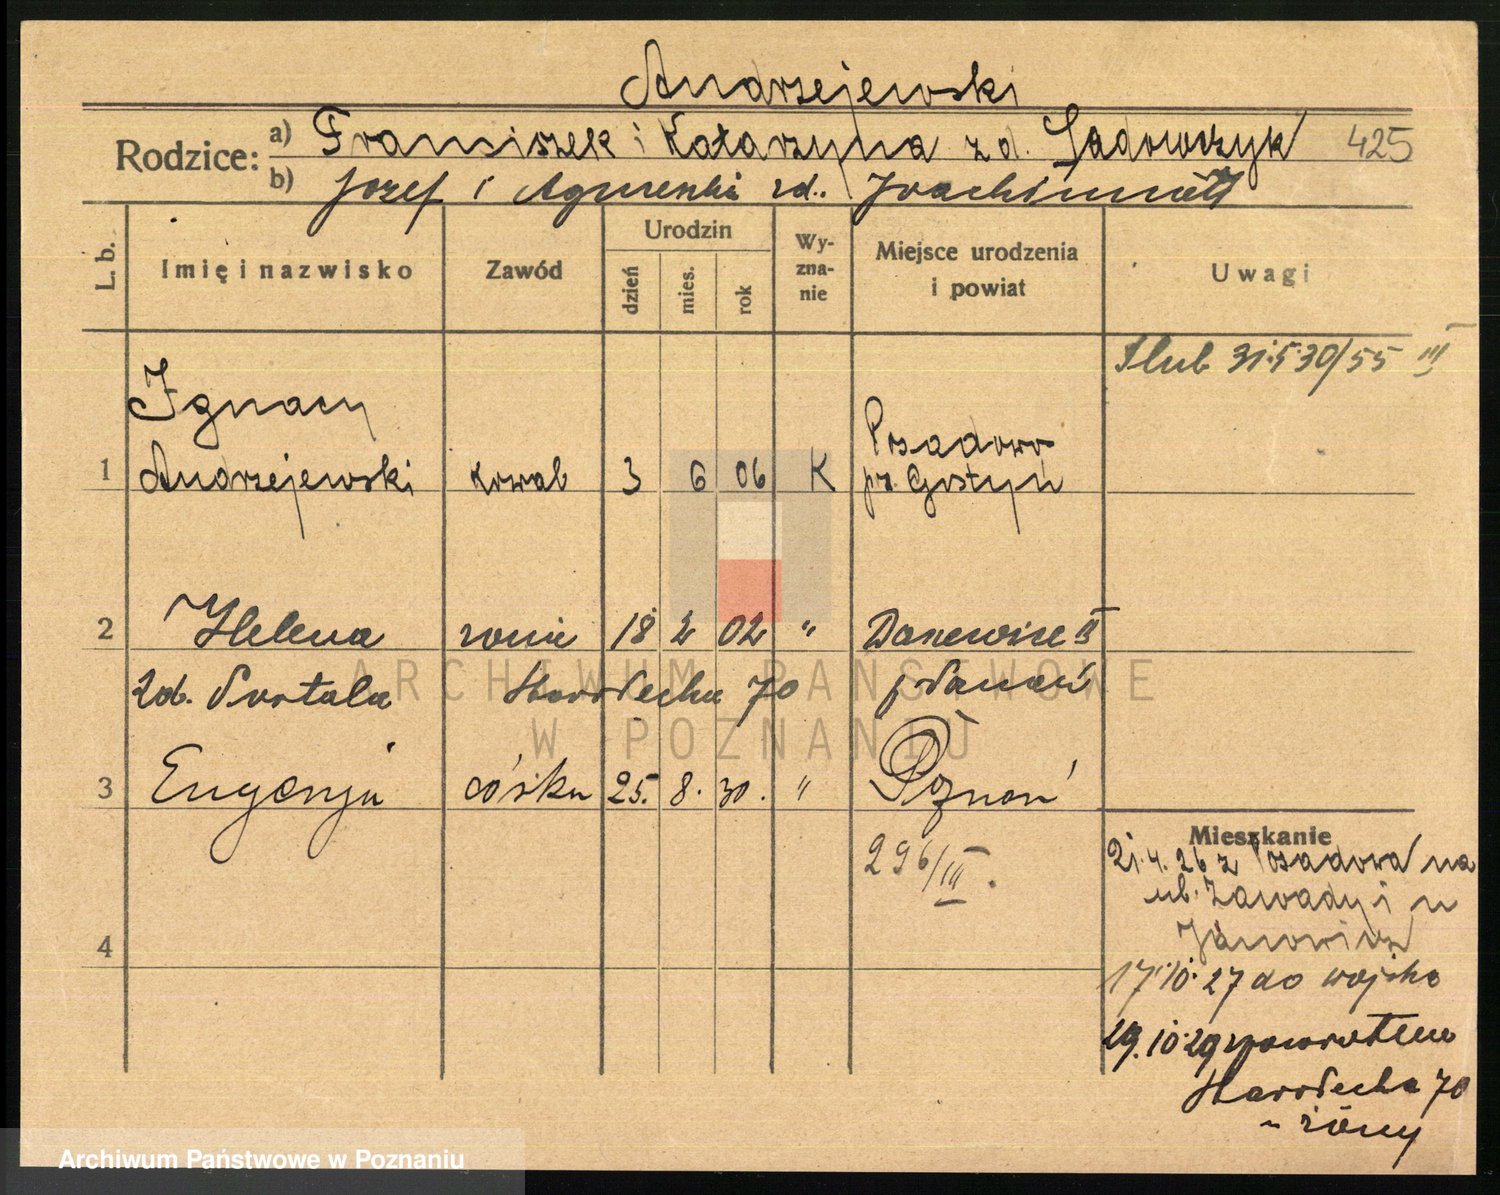 Andrzejewski
Rodzice: a) Franciszek i Katarzyna z d. Sadowczyk 425
b) Józef i Agnieszki zd.
L. b.
Imię i nazwisko
Zawód
Urodzin
dzień
mies.
rok
Wy-
zna-
nie
Miejsce urodzenia
i powiat
Uwagi
Ślub 31.5.30/55 III
Ignacy
1 Andrzejewski kowal 3 6 06 K
Posadowo
pr. Gostyń
2 Helena żonie 18 2 02 "
zd.
70
3 Eugenja córka 25. 8. 30. " Poznań
296/III.
4
Mieszkanie
21.4.26 z Posadowa na
ul. Zawady i u
17.10.27 do wojska
29.10.29 z powrotem
70
u żony
ARCHIWUM PAŃSTWOWE
W POZNANIU
Archiwum Państwowe w Poznaniu